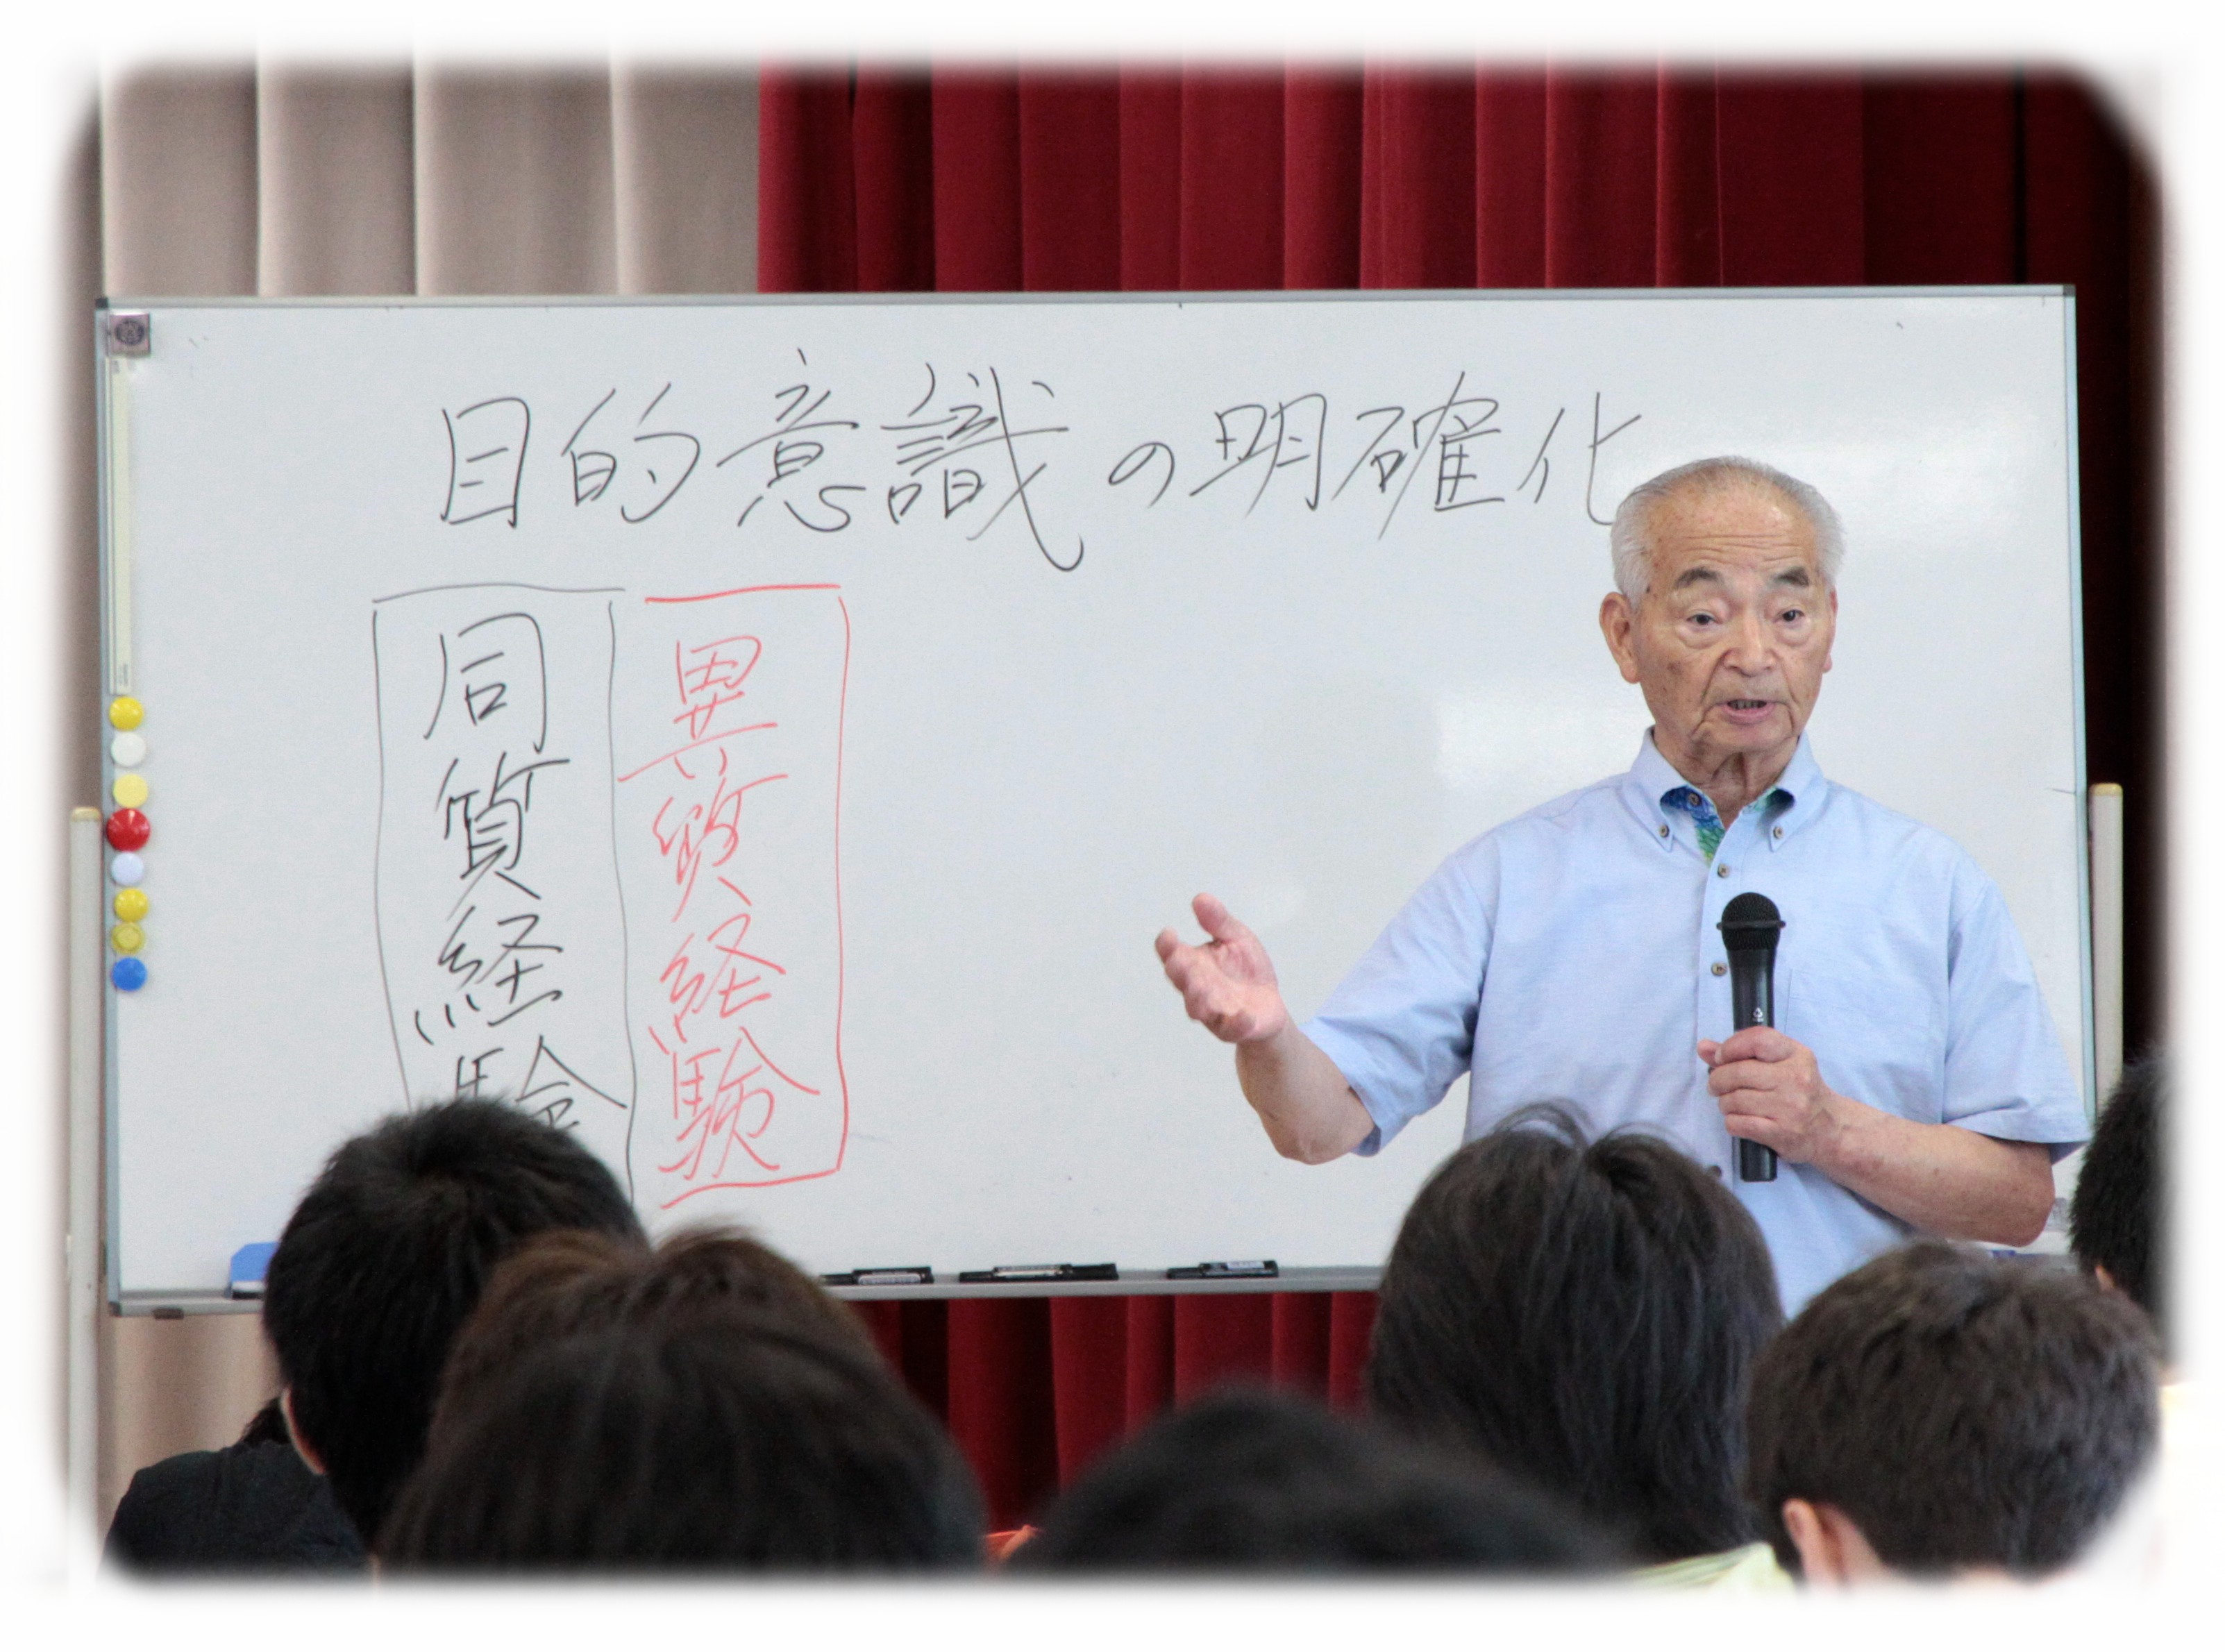 目的意識の明確化
異質経験
同質経験